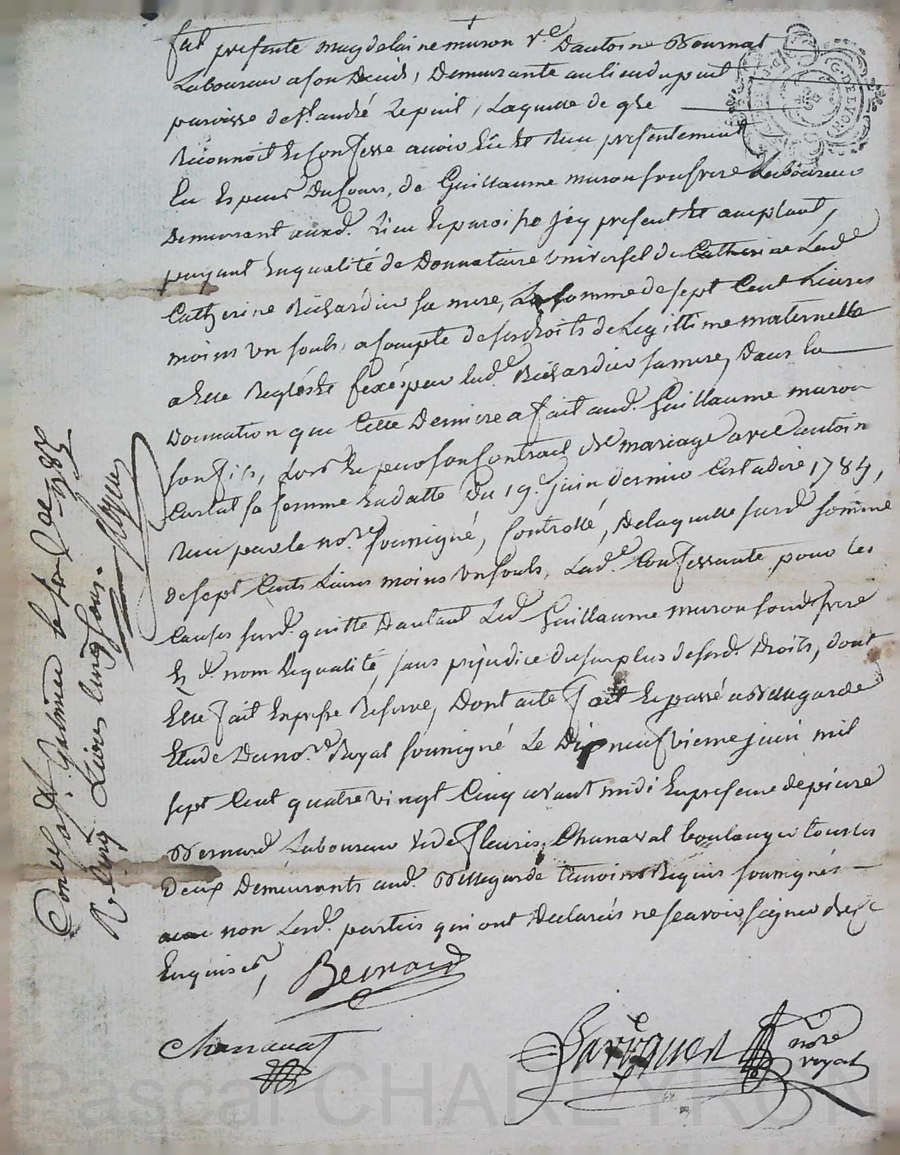 fut presente magdelaine muron v.e Dantoine Bournat
Laboureur a son Deceds, Demeurante au lieu du puit
paroisse de St. andré Le puit, Laquelle de gre
Reconnoit et confesse avoir Eû et Reçu presentement
En Especes Du Cours, de Guillaume muron son frere Laboureur
Demeurant aud. Lieu et paroisse jcy present et acceptant,
payant En qualité de Donnataire universel de Catherine Lad.e
Catherine Richardier sa mere, La somme de sept Cent Livres
moins un sould, a compte de ses droits de Legittime maternelle
a Elle Reglés et fixés par lad.e Richardier sa mere, Dans la
Donnation que Cette Derniere a fait aud. Guillaume muron
son fils, Lors et par son Contract de mariage avec antoin
sa femme En datte Du 19.e juin dernier Cest a dire 1784,
Reçu par le no.re soussigné, Controllé, De laquelle susd. somme
de sept Cents Livres moins un sould, Lad.e Confessante pour les
Causes susd. quitte Dautant Led. Guillaume muron sond. frere
Es d. nom et qualité, sans préjudice du surplus de sesd. Droits, dont
Elle fait Expresse Reserve, Dont acte fait et passé a Bellegarde
Etude Du no.re Royal soussigné Le Dix neufvieme juin mil
sept Cent quatre vingt Cinq avant midi En presence de pierre
Bernard Laboureur et de fleuris Chanavat boulanger tous les
Deux Demeurants aud. Bellegarde temoins Requis soussignés
non Lesd. parties qui ont Declarées ne sçavoir signer de ce
Enquises,
Bernard
Chanavat
no.re
royal
Con.lé a St. Galmier le 1785
R. Cinq Livres Cinq sous.
G. DE LYON
Pascal CHARLEYRON